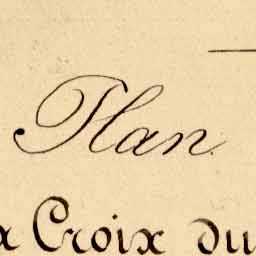 Plan.
Croix du